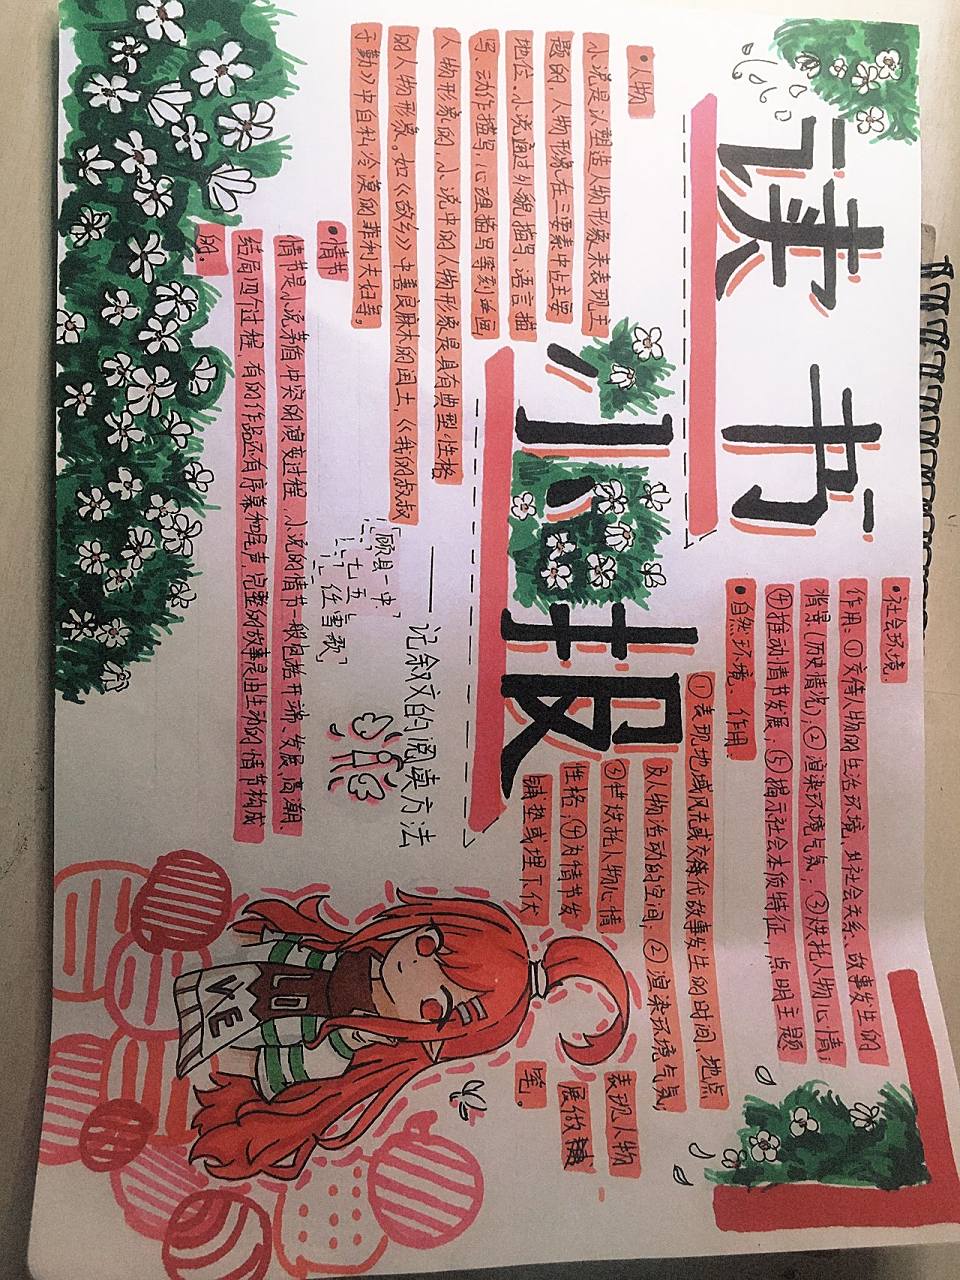 读书
小报
——记叙文的阅读方法
「顾县一中」
「七五」
「任雪歌」
•人物
小说是以塑造人物形象来表现主
题的,人物形象在三要素中占主要
地位。小说通过外貌描写、语言描
写、动作描写、心理描写等刻画
人物形象的,小说中的人物形象是具有典型性格
的人物形象。如《故乡》中善良麻木的闰土,《我的叔叔
于勒》中自私冷漠的菲利夫妇等。
•情节
情节是小说矛盾冲突的演变过程,小说的情节一般包括开端、发展、高潮、
结局四个过程,有的作品还有序幕和尾声,完整的故事是由生动的情节构成
的。
•社会环境.
作用:①交待人物的生活环境、社会关系、故事发生的
背景(历史情况);②渲染环境气氛;③烘托人物心情;
④推动情节发展;⑤揭示社会本质特征,点明主题
•自然环境.作用
①表现地域风光或交待代故事发生的时间、地点
及人物活动的空间;②渲染环境气氛,
③烘托人物心情 表现人物
性格,④为情节发 展做
铺垫或埋下伏 笔。
LO
VE